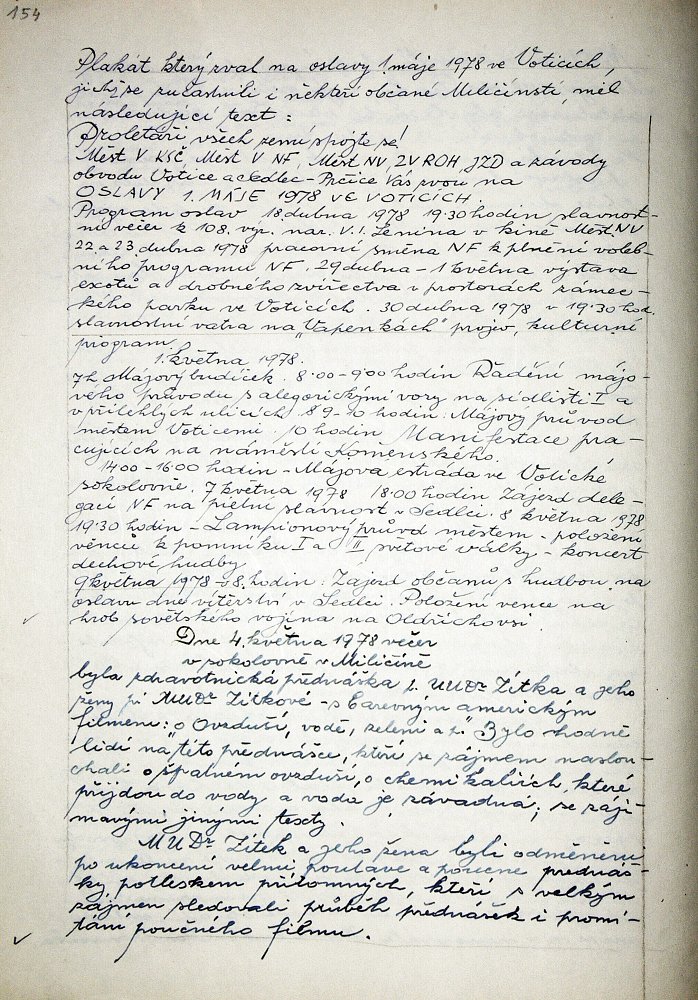 154
Plakát který zval na oslavy 1. máje 1978 ve Voticích,
jichž se zučastnili i někteří občané Miličínstí, měl
následující text :
Proletáři všech zemí spojte se!
Měst V KSČ, Měst V NF, Měst NV, ZV ROH, JZD a závody
obvodu Votice a Sedlec - Prčice Vás zvou na
OSLAVY 1. MÁJE 1978 VE VOTICÍCH.
Program oslav 18 dubna 1978 19.30 hodin slavnost-
ní večer k 108. vyr. nar. V. I. Lenina v kině Měst. NV
22 a 23 dubna 1978 pracovní směna NF k plnění voleb-
ního programu NF. 29 dubna - 1 května výstava
exotů a drobného zvířectva v prostorách zámec-
kého parku ve Voticích. 30 dubna 1978 v 19.30 hod.
slavnostní vatra na "Vápenkách" projev, kulturní
program.
1. května 1978.
7 h. Májový budíček. 8.00 - 9.00 hodin Řadění májo-
vého průvodu s alegorickými vozy na sídlišti I a
v přilehlých ulicích. 8 9 - 10 hodin: Májový průvod
městem Voticemi. 10 hodin Manifestace pra-
cujících na náměstí Komenského.
14.00 - 16.00 hodin - Májová estráda ve Votické
sokolovně. 7 května 1978 18.00 hodin Zájezd dele-
gací NF na pietní slavnost v Sedlci. 8 května 1978
19.30 hodin - Lampionový průvod městem - položení
věnců k pomníku I a II světové války - koncert
dechové hudby
9 května 1978 - 8. hodin: Zájezd občanů s hudbou na
oslavu dne vítězství v Sedlci. Položení vence na
hrob sovětského vojína na Oldřichovsi.
Dne 4. května 1978 večer
v sokolovně v Miličíně
byla zdravotnická přednáška p. MUDr Zítka a jeho
ženy pí MUDr. Zítkové - s barevným americkým
filmem: o Ovzduší, vodě, zeleni a p." Bylo hodně
lidí na této přednášce, kteří se zájmem naslou-
chali o špatném ovzduší, o chemikaliích, které
přijdou do vody a voda je závadná, se zají-
mavými jinými texty.
MUDr Zítek a jeho žena byli odměněni
po ukončení velmi poutavé a poučné prednáš-
ky potleskem přítomných, kteří s velkým
zájmem sledovali průběh přednášek i promí-
tání poučného filmu.